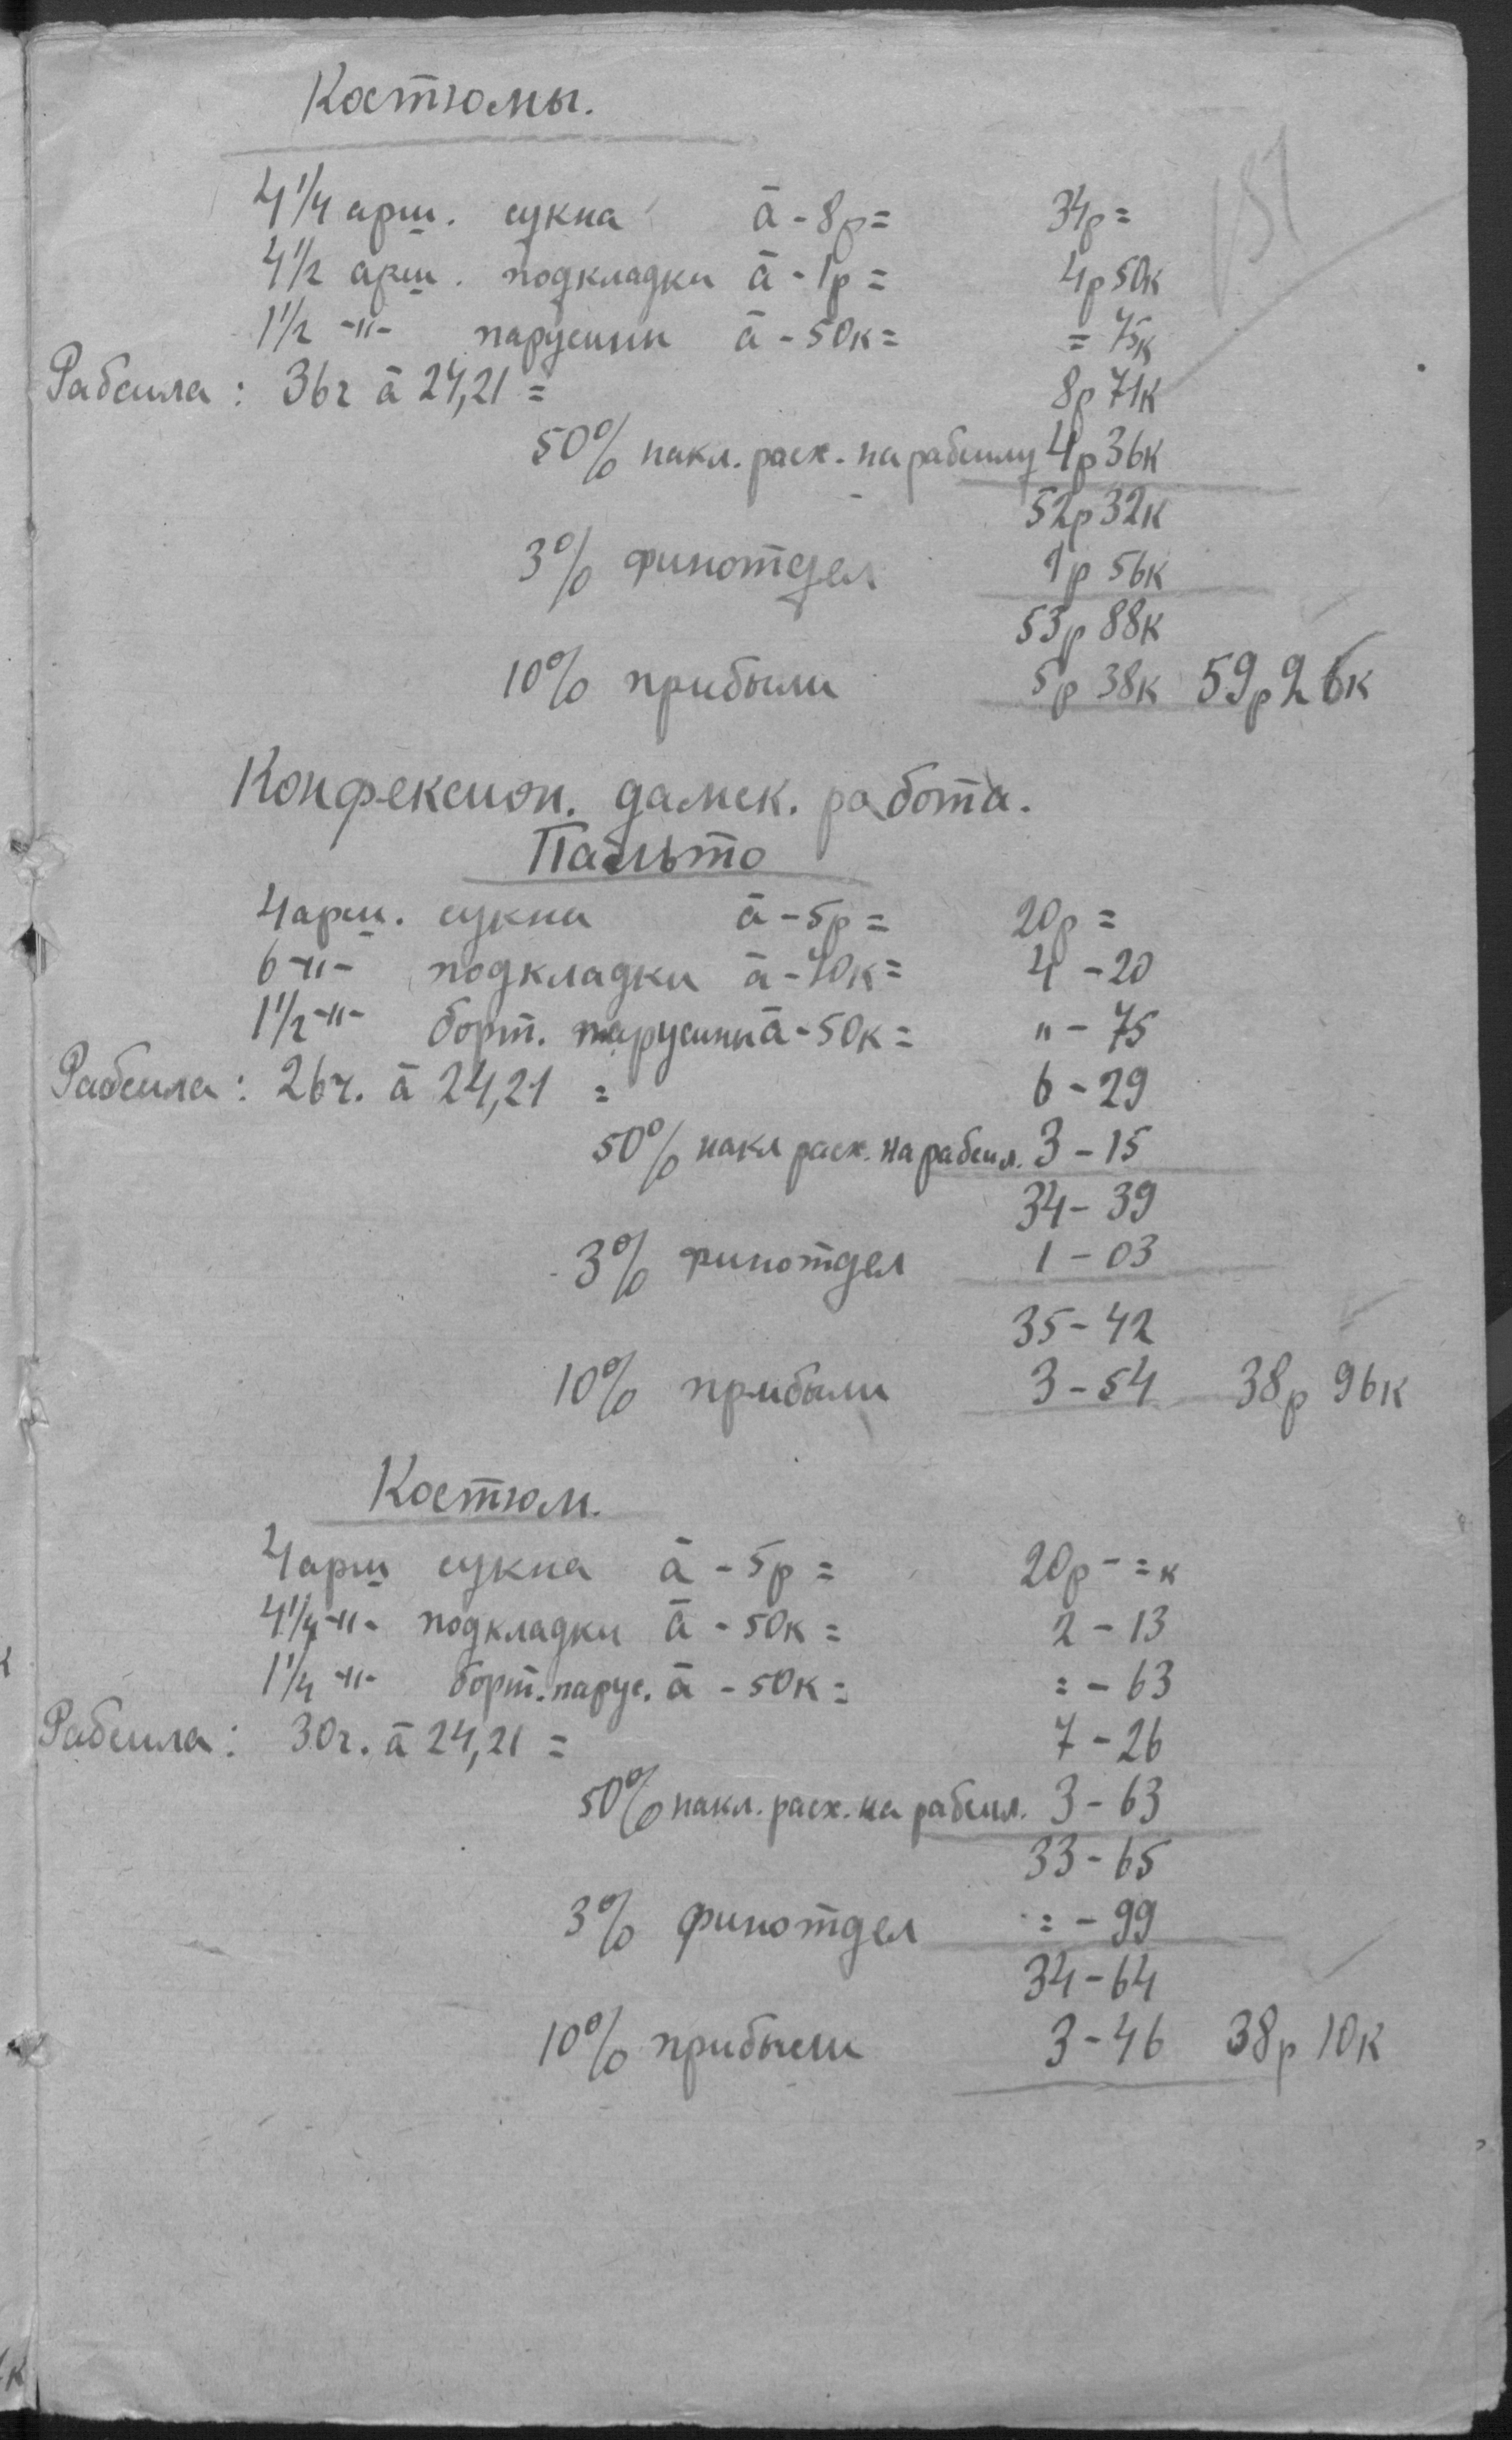 Костюмы.
151
4 1/4 арш. сукна ā - 8р = 34р =
4 1/2 арш. подкладки ā - 1р = 4р 50к
1 1/2 -"- парусин ā - 50к = = 75к
Рабсила: 36ч ā 24,21 = 8р 71к
50% накл. расх. на рабсилу 4р 36к
52р 32к
3% финотдел 1р 56к
53р 88к
10% прибыли 5р 38к 59р 26к
Конфексион. дамск. работа.
Пальто
4 арш. сукна ā - 5р = 20р =
6 -"- подкладки ā - 70к = 4 - 20
1 1/2 -"- борт. парусины ā - 50к = " - 75
Рабсила: 26ч. ā 24,21 = 6 - 29
50% накл расх. на рабсил. 3 - 15
34 - 39
3% финотдел 1 - 03
35 - 42
10% прибыли 3 - 54 38р 96к
Костюм.
4 арш сукна ā - 5р = 20р - = к
4 1/4 -"- подкладки ā - 50к = 2 - 13
1 1/4 -"- борт. парус. ā - 50к = = - 63
Рабсила: 30ч. ā 24,21 = 7 - 26
50% накл. расх. на рабсил. 3 - 63
33 - 65
3% финотдел = - 99
34 - 64
10% прибыли 3 - 46 38р 10к